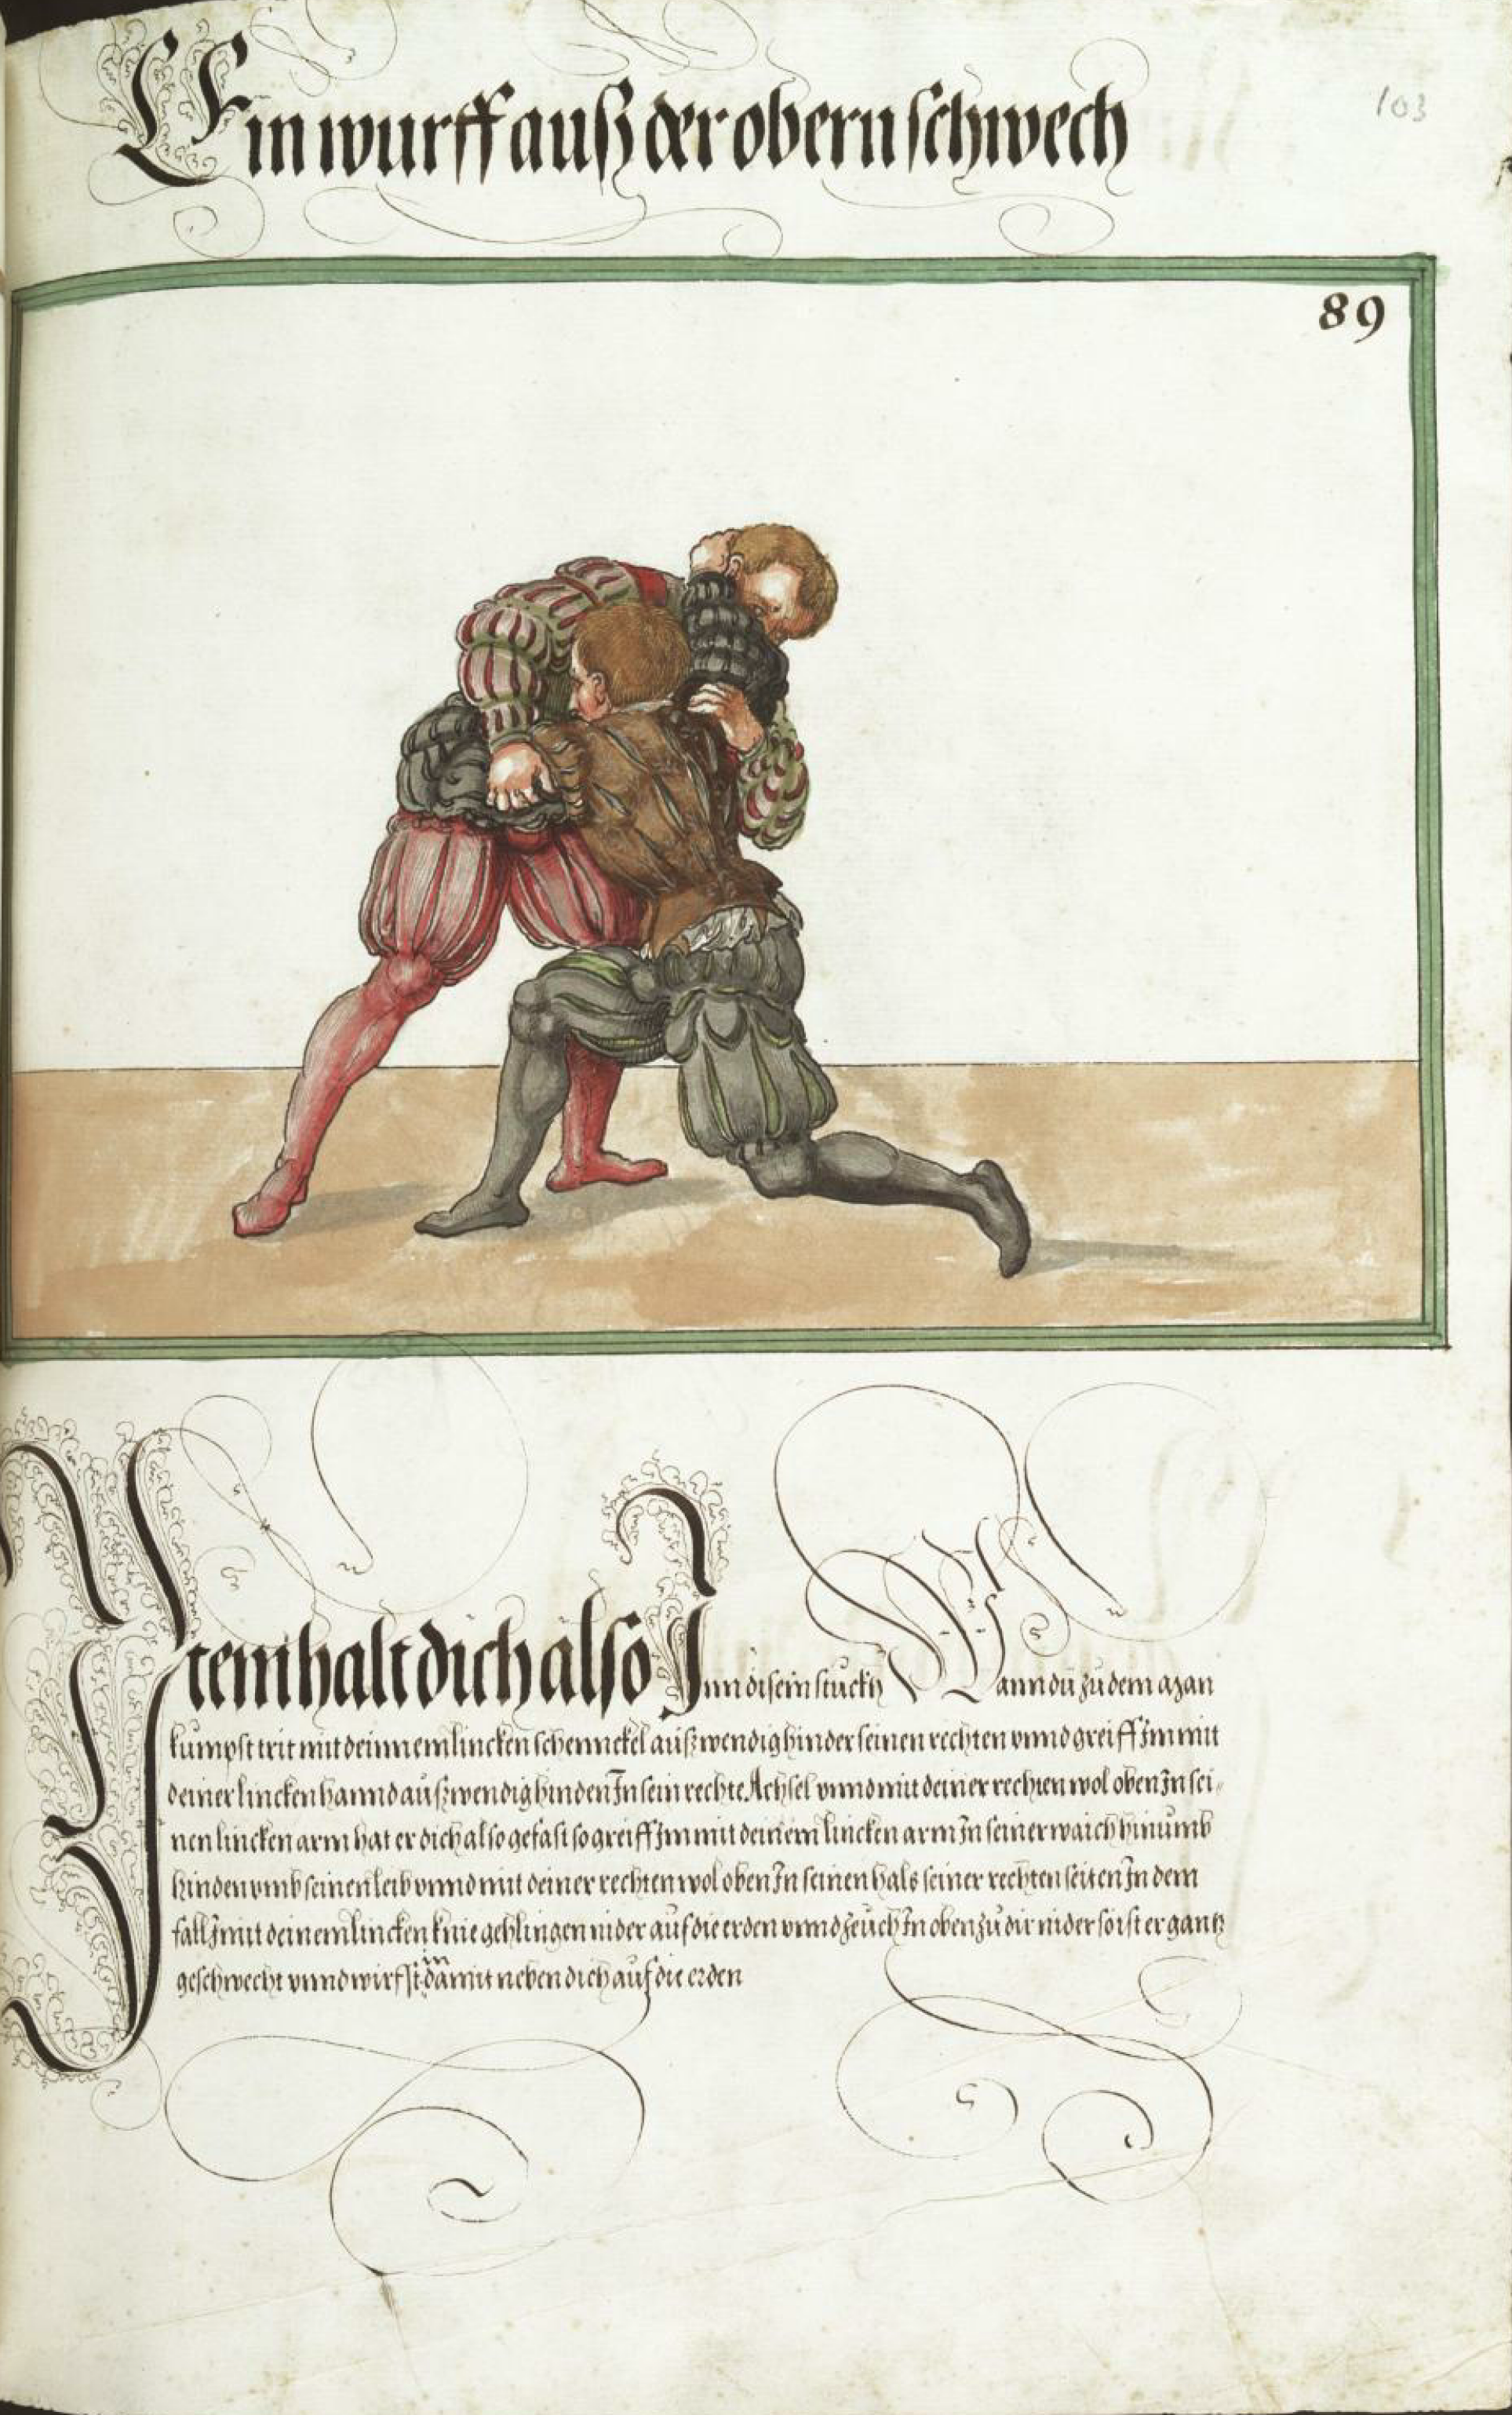 Ein wurff auß der obern schwech
103
89
Item halt dich also Inn disem stuckh Wann du zu dem a man
kumpst trit mit deinnem lincken schennckel außwendig hinder seinen rechten vnnd greiff Im mit
deiner lincken hannd außwendig hinden In sein rechte Achsel vnnd mit deiner rechten wol oben In sei-
nen lincken arm hat er dich also gefast so greiff Im mit deinem lincken arm In seiner waich hinumb
hinden vmb seinen leib vnnd mit deiner rechten wol oben In seinen hals seiner rechten seiten In dem
fall Im mit deinem lincken knie gehlingen nider auf die erden vnnd zeuch In oben zu dir nider so ist er gantz
geschwecht vnnd wirffst in damit neben dich auf die erden